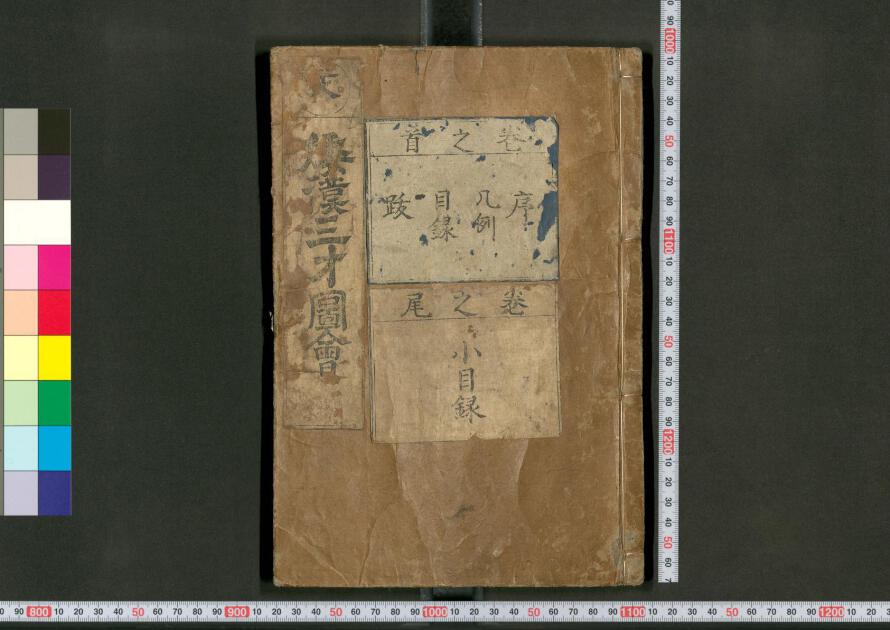 倭漢三才圖會
卷之首
序
凡例
目録
跋
卷之尾
小目録
90 800 10 20 30 40 50 60 70 80 90 900 10 20 30 40 50 60 70 80 90 1000 10 20 30 40 50 60 70 80 90 1100 10 20 30 40 50 60 70 80 90 1200 10 20
90 1000 10 20 30 40 50 60 70 80 90 1100 10 20 30 40 50 60 70 80 90 1200 10 20 30 40 50 60